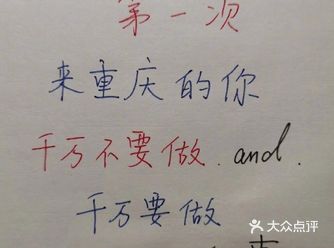 第一次
来重庆的你
千万不要做.and.
千万要做
大众点评